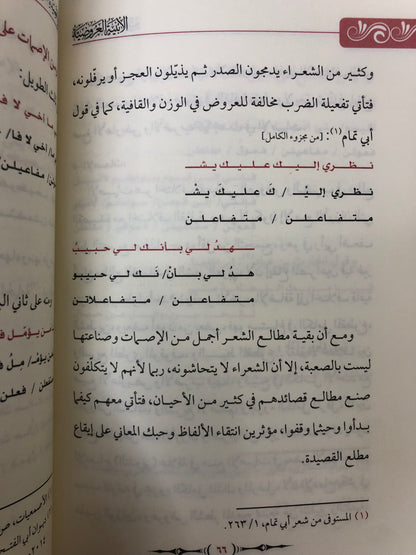 الأبنية العروضية
وكثير من الشعراء يدمجون الصدر ثم يذيّلون العجز أو يرفّلونه،
فتأتي تفعيلة الضرب مخالفة للعروض في الوزن والقافية، كما في قول
أبي تمام(١): [من مجزوء الكامل]
نظري إليـك عليـك يشـ
نظري إليْـ / ك عليـك يشْـ
متـفـاعـلـن / مـتـفـاعلـن
ـهدُ لـي بـانـك لـي حبيبُ
هدُ لي بـأنْ/ نَـك لي حبيبو
متـفـاعلـن / متـفـاعلاتن
ومع أن بقية مطالع الشعر أجمل من الإصمات وصناعتها
ليست بالصعبة، إلا أن الشعراء لا يتحاشونه، ربما لأنهم لا يتكلّفون
صنع مطالع قصائدهم في كثير من الأحيان، فتأتي معهم كيفما
بدأوا وحيثما وقفوا، مؤثرين انتقاء الألفاظ وحبك المعاني على إيقاع
مطلع القصيدة.
(١) المستوفى من شعر أبي تمام، ٢٦٣/١.
٦٦